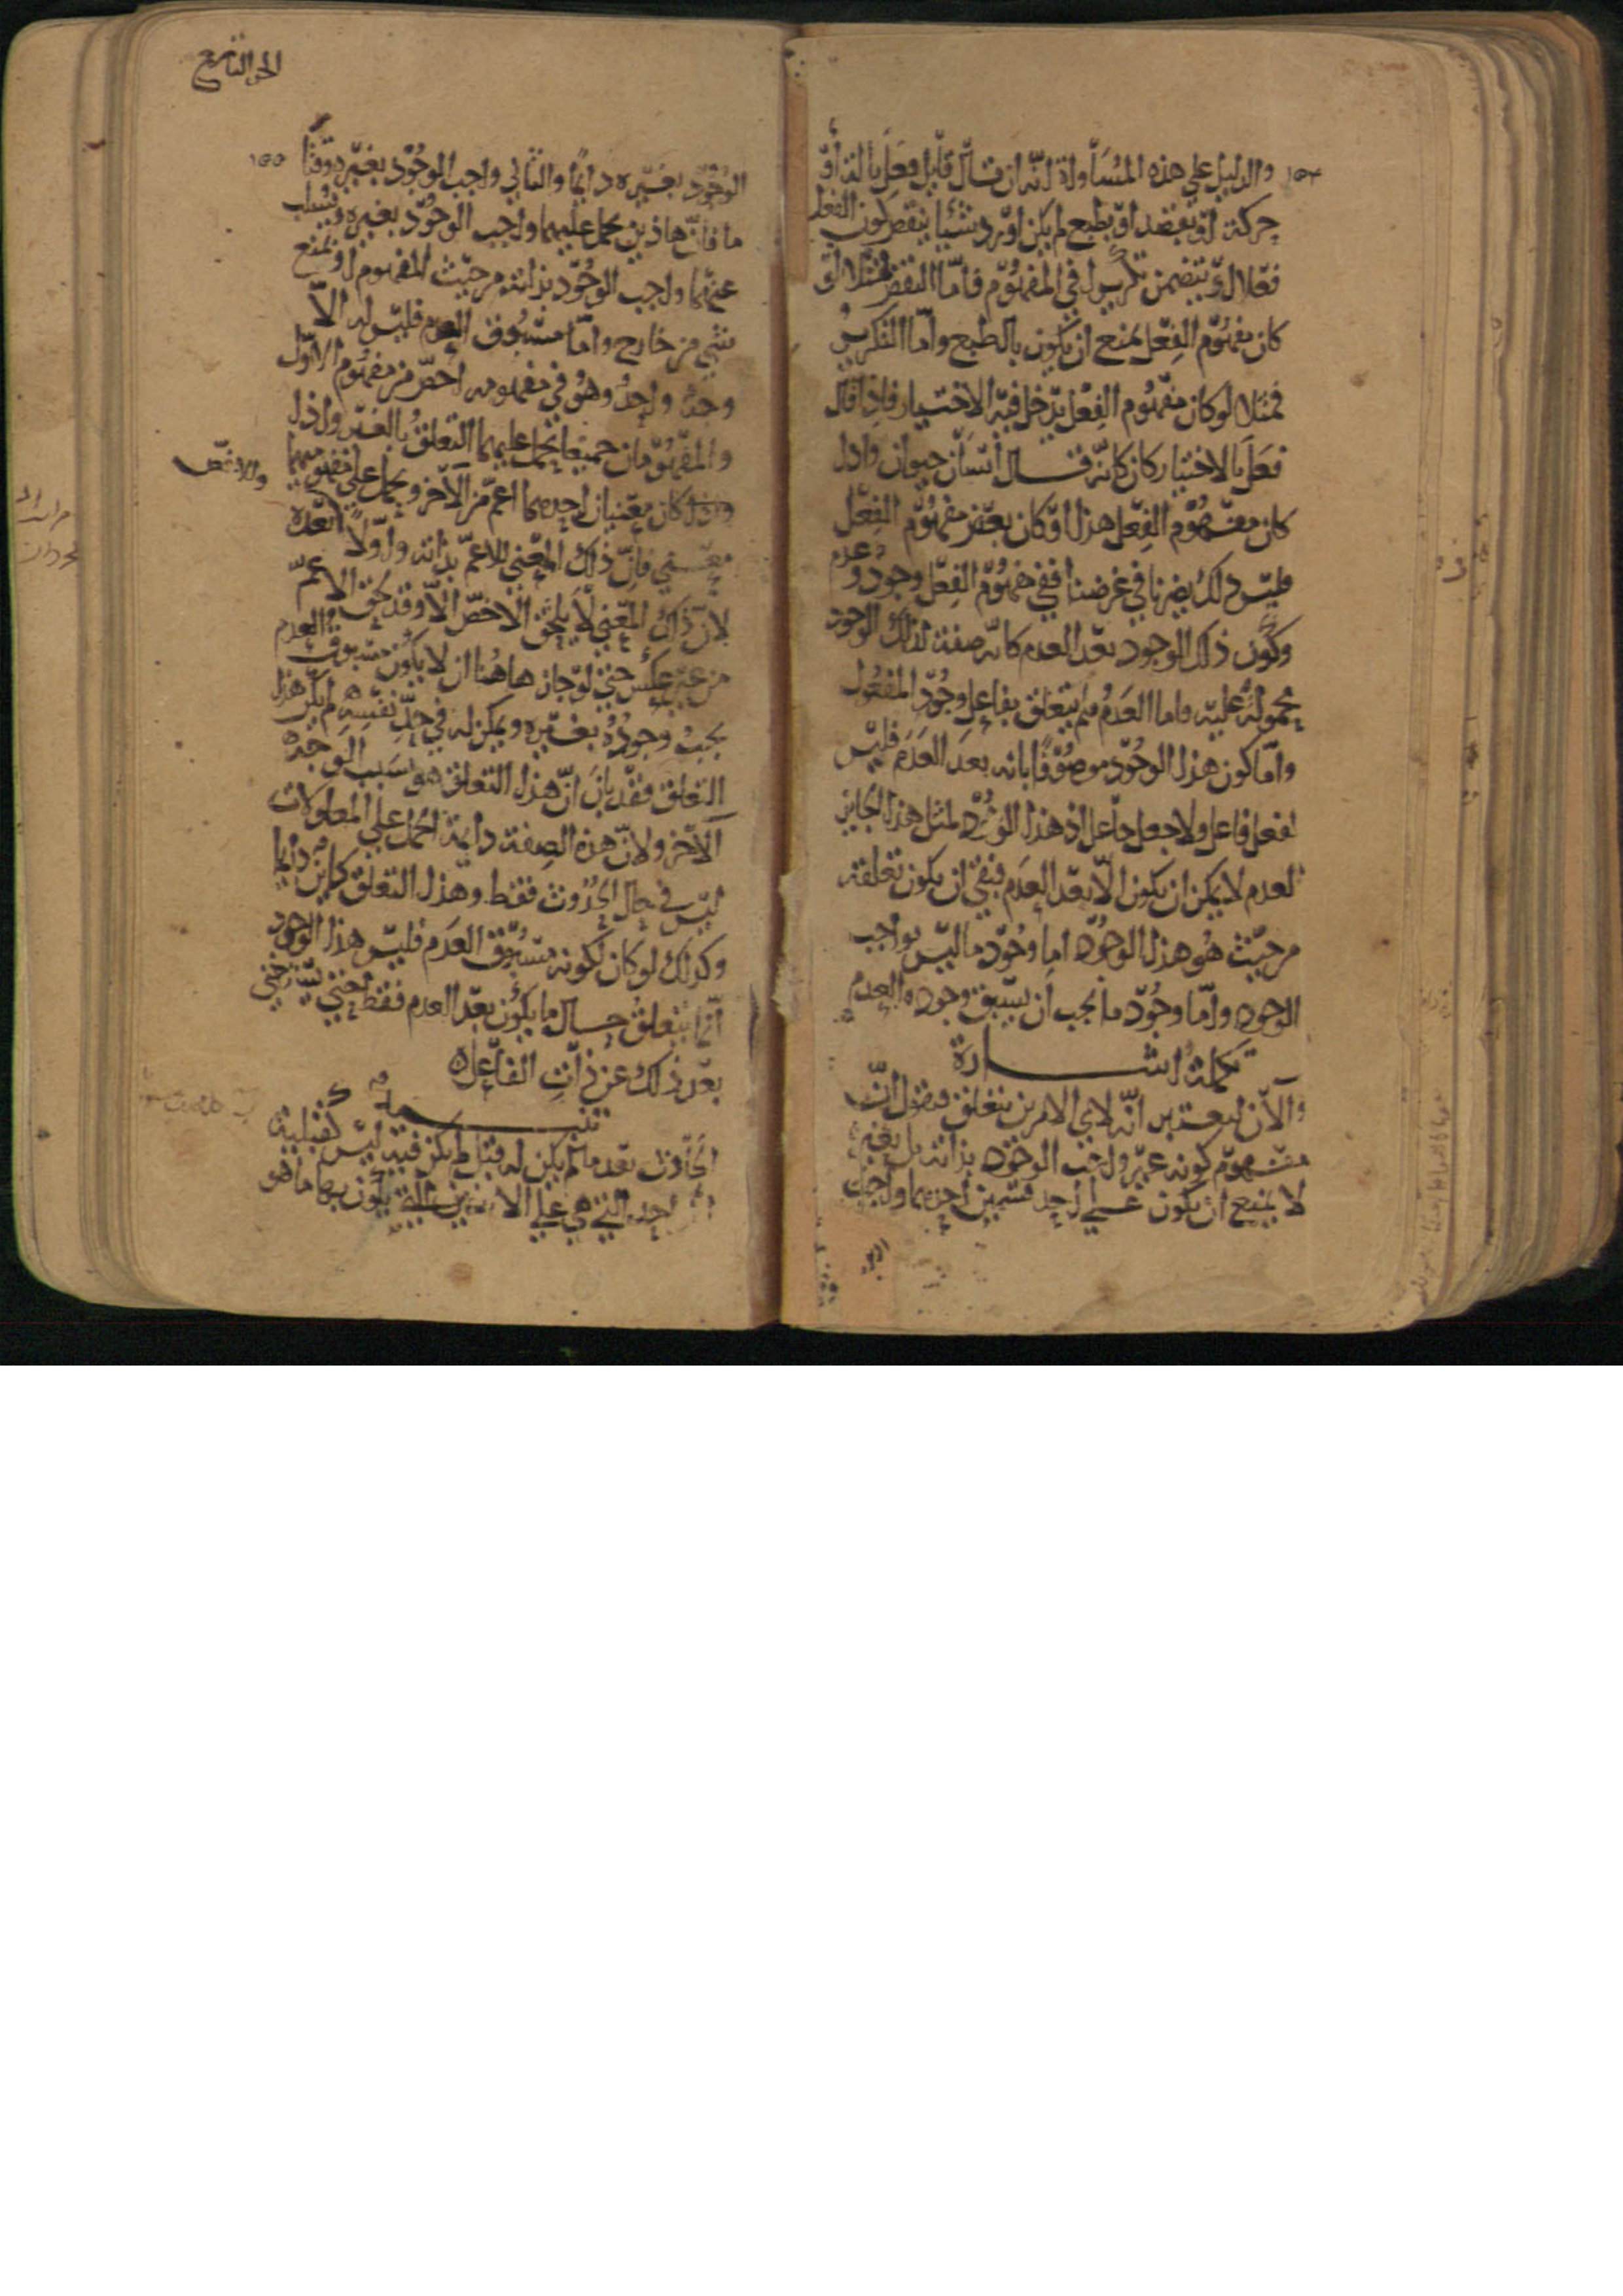 والدليل على هذه المساواة انه ان قال قايل فعل بالة او
حركة او بقصد او بطبع لم يكن اورد شيئا ينقض كون الفعل
فعلا او يتضمن تكريرا في المفهوم فاما النقض فمثلا لو
كان مفهوم الفعل يمنع ان يكون بالطبع واما التكرير
فمثلا لو كان مفهوم الفعل يدخل فيه الاختيار فاذا قال
فعل بالاختيار كان كانه قال انسان حيوان واذا
كان مفهوم الفعل هذا او كان بعض مفهوم الفعل
فليس ذلك يضرنا في غرضنا ففي مفهوم الفعل وجود وعدم
وكون ذلك الوجود بعد العدم كانه صفة لذلك الوجود
محمولة عليه فاما العدم فلم يتعلق بفاعل وجود المفعول
واما كون هذا الوجود موصوفا بانه بعد العدم فليس
لفعل فاعل ولا جعل جاعل اذ هذا الوجود لمثل هذا الجايز
العدم لا يمكن ان يكون الا بعد العدم فبقي ان يكون تعلقه
من حيث هو هذا الوجود اما وجود ما ليس بواجب
الوجود واما وجود ما يجب ان يسبق وجوده العدم
تكملة اشارة
والآن لنعتبر انه لاي الامرين يتعلق فنقول ان
مفهوم كونه غير واجب الوجود بذاته بل بغيره
لا يمنع ان يكون على احد قسمين احدهما واجب
الجز التاسع
١٥٥
الوجود بغيره دايما والثاني واجب الوجود بغيره وقتا
ما فان هاذين يحمل عليهما واجب الوجود بغيره ويسلب
عنهما واجب الوجود بذاته من حيث المفهوم او يمنع
شي من خارج واما مسبوق العدم فليس له الا
وجه واحد وهو في مفهومه اخص من مفهوم الاول
والمفهومان جميعا يحمل عليهما التعلق بالغير واذا
كان معنيان احدهما اعم من الآخر ويحمل على مفهوميهما
معنى فان ذلك المعنى للاعم بذاته واولا
والاخص بعده
لان ذلك المعنى لا يلحق الاخص الا وقد لحق الاعم
من غير عكس حتى لو جاز هاهنا ان لا يكون مسبوق العدم
يجب وجوده بغيره ويمكن له في حد نفسه لم يكن هذا
التعلق فقد بان ان هذا التعلق هو بسبب الوجه
الآخر ولان هذه الصفة دايمة الحمل على المعلولات
ليس في حال الحدوث فقط وهذا التعلق كاين دايما
وكذلك لو كان لكونه مسبوق العدم فليس هذا الوجود
انما يتعلق حال ما يكون بعد العدم فقط حتى يستغني
بعد ذلك عن ذات الفاعل
تنبيه
الحادث بعد ما لم يكن له قبل لم يكن فيه ليس كقبلية
التي هي على الاثنين التي يكون بها ما هو